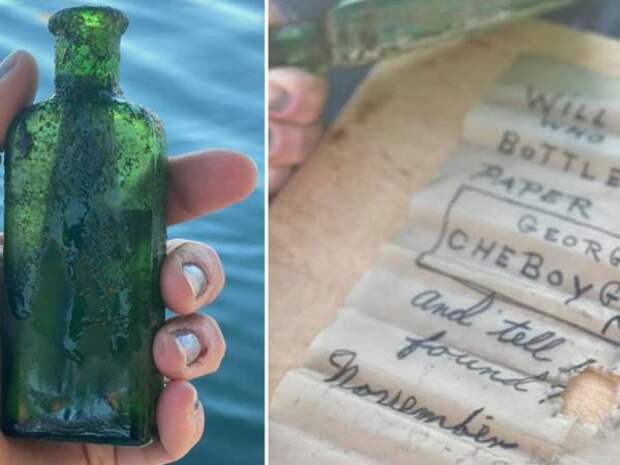 WILL
WHO
BOTTLE
PAPER
GEORG
CHEBOYG
and tell
found
November